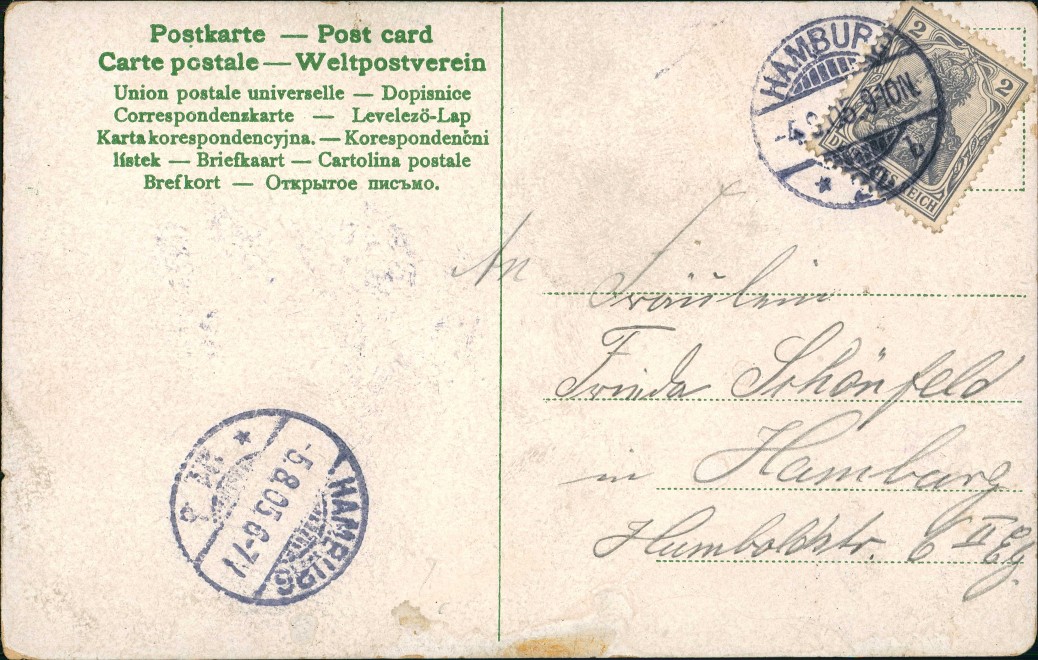 Postkarte — Post card
Carte postale — Weltpostverein
Union postale universelle — Dopisnice
Correspondenzkarte — Levelező-Lap
Karta korespondencyjna. — Korespondenční
lístek — Briefkaart — Cartolina postale
Brefkort — Открытое письмо.
HAMBURG
9-10N.
2
2
REICH
An
Fräulein
Frieda Schönfeld
in Hamburg
Humboldstr. 6 II Etg.
HAMBURG
-5.8.05.6-7V